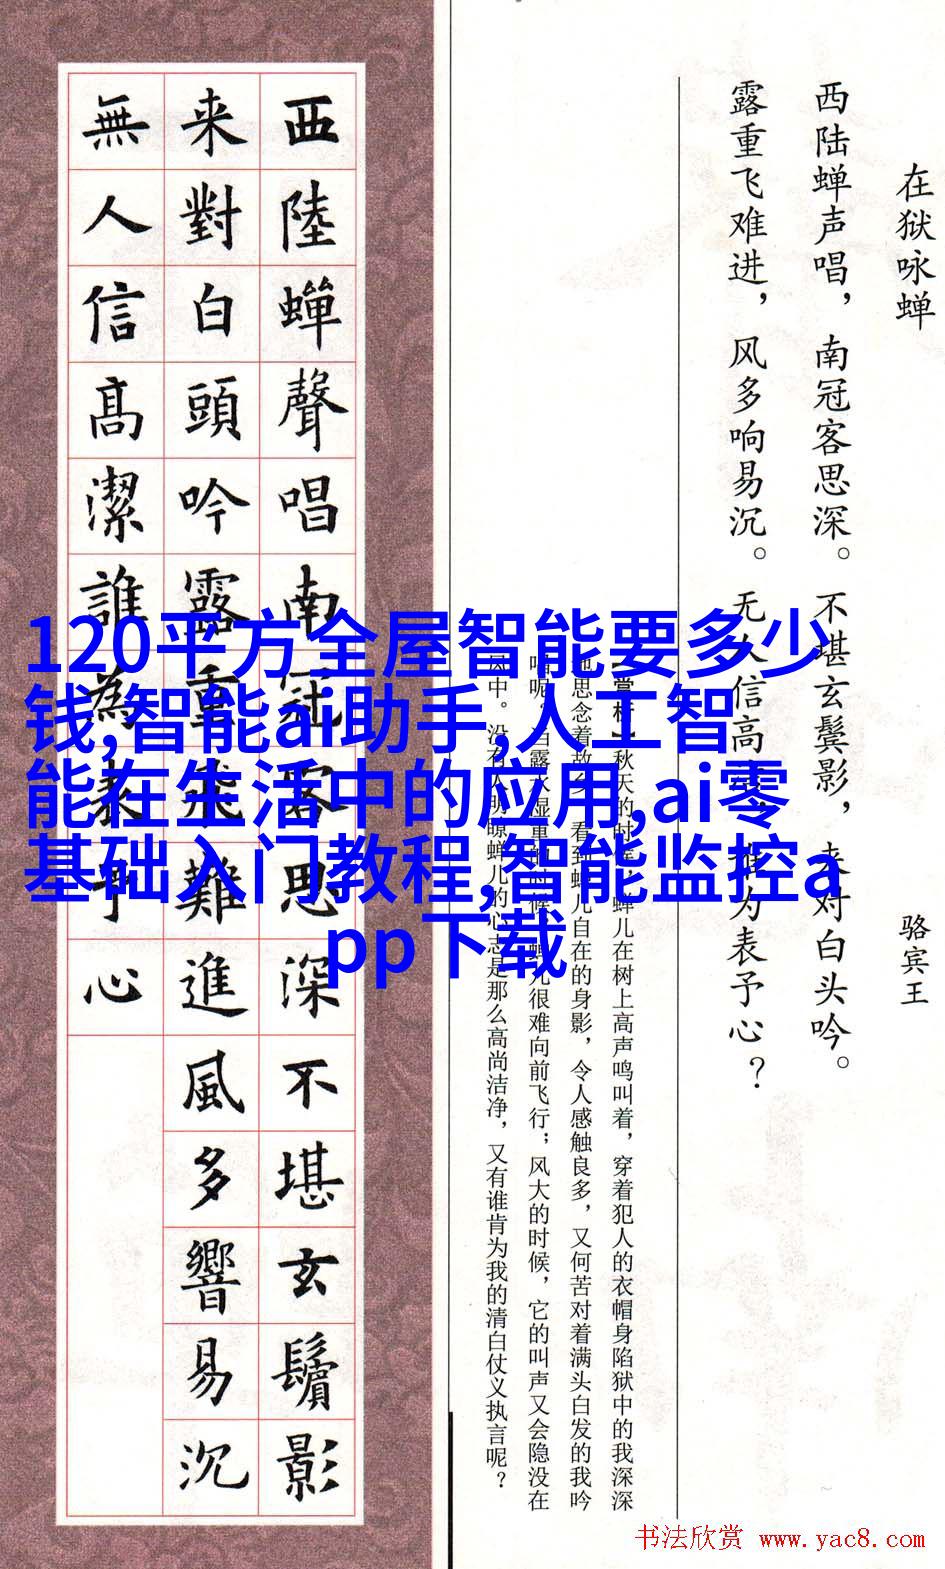 在狱咏蝉
骆宾王
西陆蝉声唱，南冠客思深。不堪玄鬓影，来对白头吟。
露重飞难进，风多响易沉。无人信高洁，谁为表予心？
【赏析】秋天的时候，蝉儿在树上高声鸣叫着，穿着犯人的衣帽身陷狱中的我深深
地思念着故乡。看到蝉儿自在的身影，令人感触良多，又何苦对着满头白发的我吟
唱呢。白露水湿重的时候，蝉儿很难向前飞行；风大的时候，它的叫声又会隐没在
风中。没有人明瞭蝉儿的心志是那么高尚洁净，又有谁肯为我的清白仗义执言呢？
西陸蟬聲唱南冠客思深不堪玄鬢影
来對白頭吟露重飛難進風多響易沉
無人信高潔誰為表予心
120平方全屋智能要多少
钱,智能ai助手,人工智
能在生活中的应用,ai零
基础入门教程,智能监控a
pp下载
书法欣赏 www.yac8.com